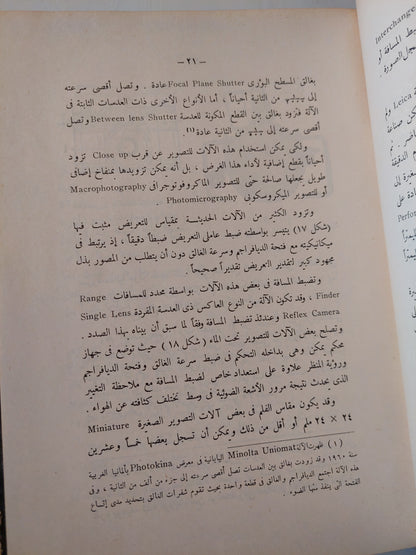 — ٢١ —
بغالق المسطح البؤرى Focal Plane Shutter عادة . وتصل أقصى سرعته
إلى من الثانية أحيانا ، أما الأنواع الأخرى ذات العدسات الثابتة فى
الآلة فتزود بغالق بين القطع المكونة للعدسة Between lens Shutter وتصل
أقصى سرعته إلى من الثانية عادة (١) .
ولكى يمكن استخدام هذه الآلات للتصوير عن قرب Close up تزود
أحيانا بقطع إضافية لأداء هذا الغرض ، بل أنه يمكن تزويدها بمنفاخ إضافى
طويل يجعلها صالحة حتى للتصوير الماكروفوتوجرافى Macrophotography
أو للتصوير الميكروسكوبى Photomicrography .
وتزود الكثير من الآلات الحديثة بمقياس للتعريض مثبت فيها
(شكل ١٧) يتيسر بواسطته ضبط عاملى التعريض ضبطاً دقيقاً ، إذ يرتبط فى
ميكانيكيته مع فتحة الديافراجم وسرعة الغالق دون أن يتطلب من المصور بذل
مجهود كبير لتقدير التعريض تقديراً صحيحاً .
وتضبط المسافة فى بعض الآلات بواسطة محدد للمسافات Range
Finder ، وقد تكون الآلة من النوع العاكس ذى العدسة المفردة Single Lens
Reflex Camera وعندئذ تضبط المسافة وفقاً لما سبق أن بيناه بهذا الصدد .
وتصلح بعض الآلات للتصوير تحت الماء (شكل ١٨) حيث توضع فى جهاز
محكم يمكن وهى بداخله التحكم فى ضبط سرعة الغالق وفتحة الديافراجم
ورؤية المنظر علاوة على استعداد خاص لضبط المسافة مع ملاحظة التغيير
الذى يحدث نتيجة مرور الأشعة الضوئية فى وسط تختلف كثافته عن الهواء .
وقد يكون مقاس الفلم فى بعض آلات التصوير الصغيرة Miniature
٢٤ × ٢٤ ملم أو أقل من ذلك ويمكن أن تسجل بعضها خمساً وعشرين
(١) ظهرت الآلة Minolta Uniomat اليابانية فى معرض Photokina بألمانيا الغربية
سنة ١٩٦٠ وقد زودت بغالق بين العدسات تصل أقصى سرعته إلى جزء من ألف من الثانية ، وفى
هذه الآلة اجتمع الديافراجم والغالق فى قطعة واحدة بحيث تقوم شفرات الغالق بتحديد مدى إتساع
الفتحة التى ينفذ منها الضوء .
Interchange
ضبط المسافة أو
سجل الصورة
Leica